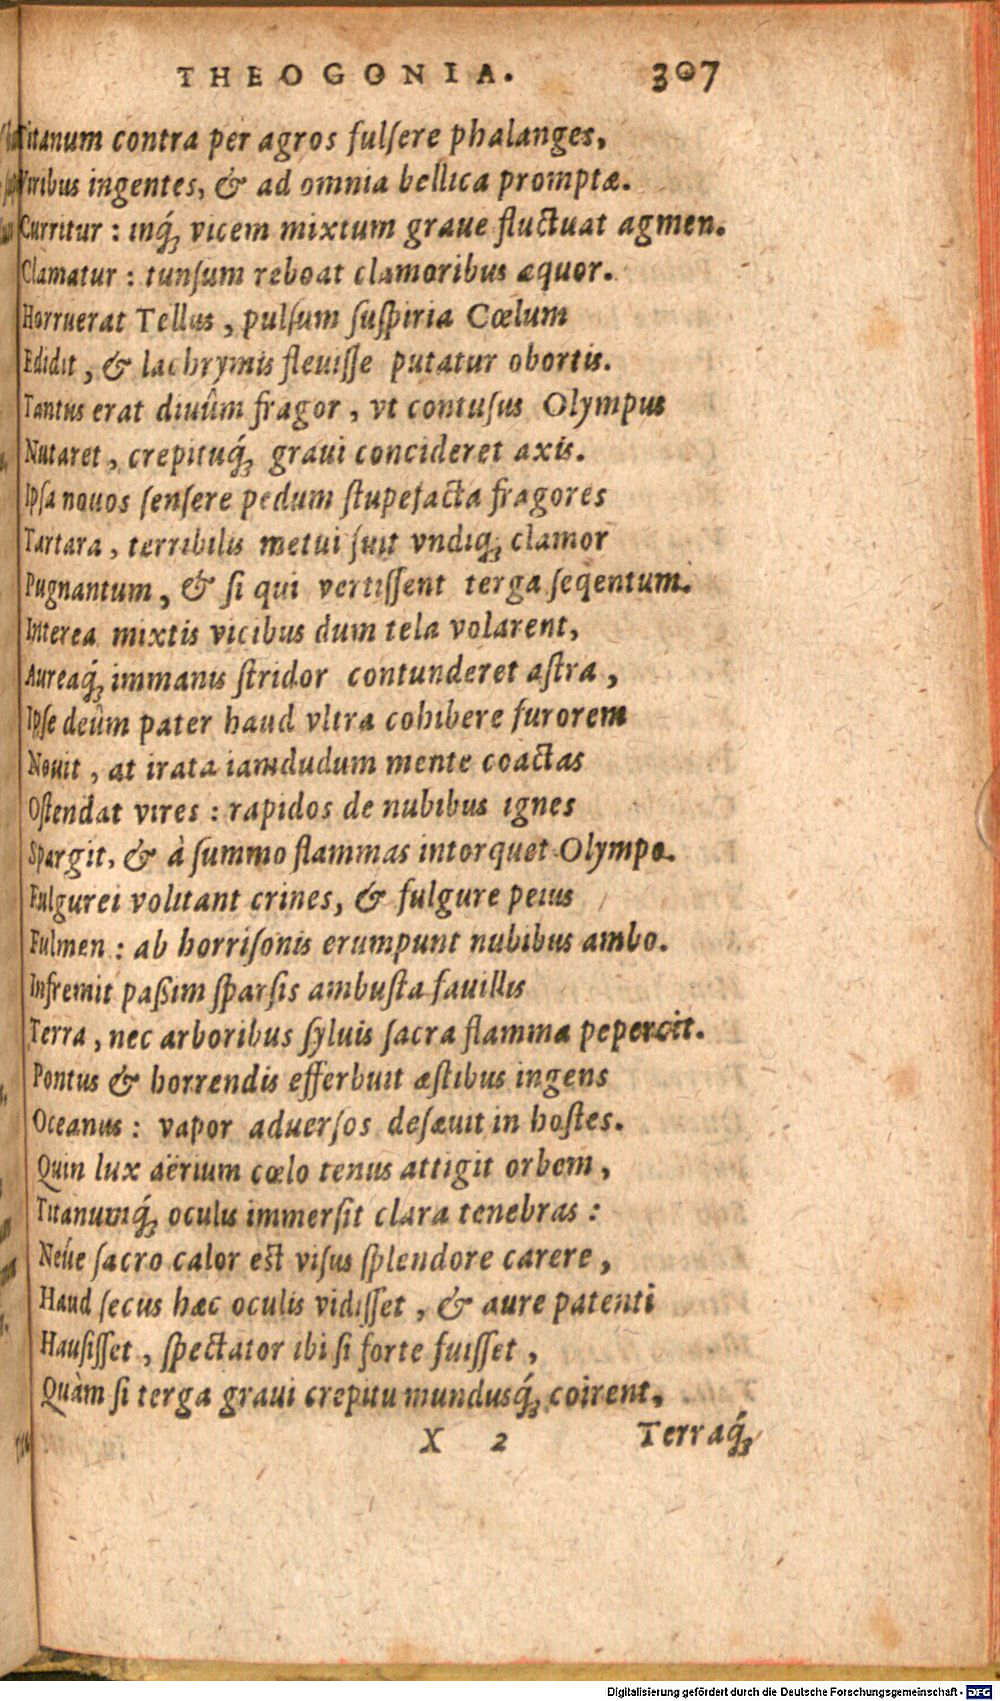 THEOGONIA. 307
Titanum contra per agros fulſere phalanges,
Viribus ingentes, & ad omnia bellica promptæ.
Curritur : inq́ꝫ vicem mixtum graue fluctuat agmen.
Clamatur : tunſum reboat clamoribus æquor.
Horruerat Tellus , pulſum ſuſpiria Cœlum
Edidit , & lachrymis fleuiſſe putatur obortis.
Tantus erat diuûm fragor , vt contuſus Olympus
Nutaret , crepituq́ꝫ graui concideret axis.
Ipſa nouos ſenſere pedum ſtupefacta fragores
Tartara , terribilis metui fuit vndiqꝫ clamor
Pugnantum , & ſi qui vertiſſent terga ſeqentum.
Interea mixtis vicibus dum tela volarent,
Aureaq́ꝫ immanis ſtridor contunderet aſtra ,
Ipſe deûm pater haud vltra cohibere furorem
Nouit , at irata iamdudum mente coactas
Oſtendat vires : rapidos de nubibus ignes
Spargit, & à ſummo flammas intorquet Olympo.
Fulgurei volitant crines, & fulgure peius
Fulmen : ab horriſonis erumpunt nubibus ambo.
Infremit paßim ſparſis ambuſta fauillis
Terra , nec arboribus ſyluis ſacra flamma pepercit.
Pontus & horrendis efferbuit æſtibus ingens
Oceanus : vapor aduerſos deſæuit in hoſtes.
Quin lux aërium cœlo tenus attigit orbem ,
Titanumq́ꝫ oculis immerſit clara tenebras :
Neúe ſacro calor eſt viſus ſplendore carere ,
Haud ſecus hæc oculis vidiſſet , & aure patenti
Hauſiſſet , ſpectator ibi ſi forte fuiſſet ,
Quàm ſi terga graui crepitu mundusq́ꝫ coirent,
X 2 Terraq́ꝫ
Digitalisierung gefördert durch die Deutsche Forschungsgemeinschaft - DFG